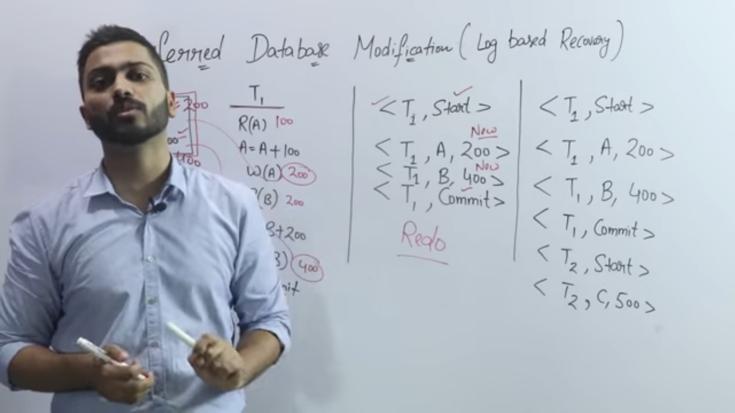 ferred Database Modification ( Log based Recovery )
= 200
T1
R(A) 100
A = A + 100
W(A) 200
(B) 200
+ 200
) 400
it
< T1, Start >
New
< T1, A, 200 >
New
< T1, B, 400 >
< T1, Commit >
Redo
< T1, Start >
< T1, A, 200 >
< T1, B, 400 >
< T1, Commit >
< T2, Start >
< T2, C, 500 >